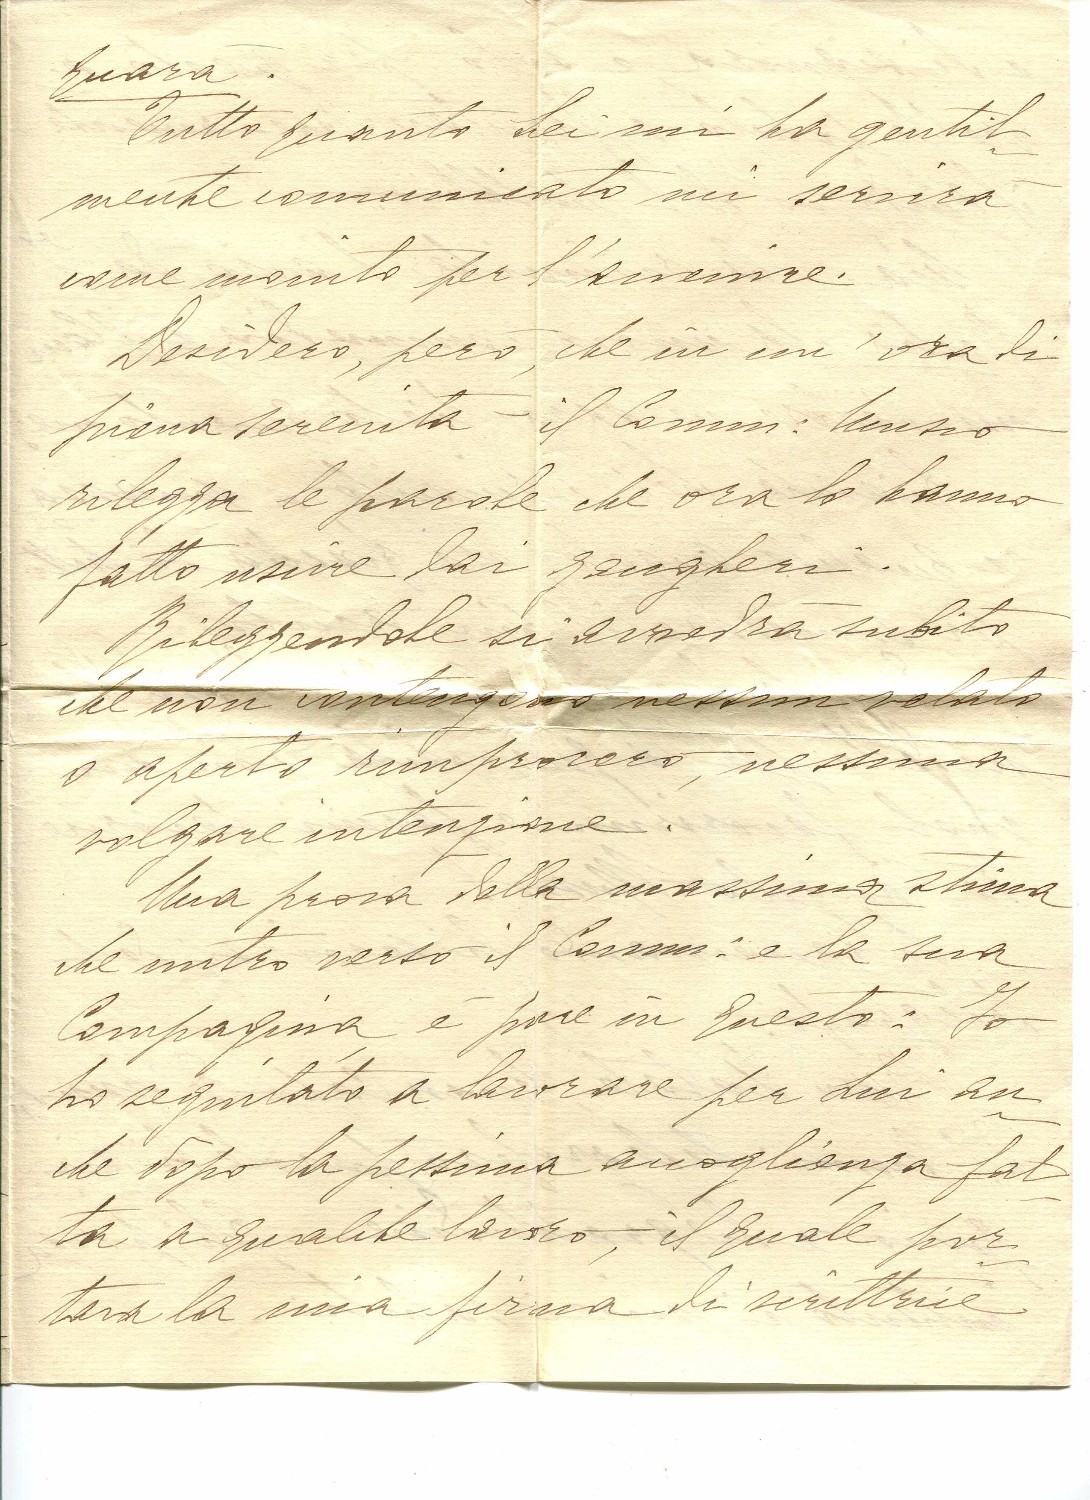 quarà.
Tutto quanto Lei mi ha gentil-
mente comunicato mi servirà
come monito per l'avvenire.
Desidero, però, che in un'ora di
piena serenità il Comm: Musso
rilegga le parole che ora lo hanno
fatto uscire dai gangheri.
Rileggendole si avvedrà subito
che non contengono nessun velato
o aperto rimprovero, nessuna
volgare intenzione.
Una prova della massima stima
che nutro verso il Comm: e la sua
Compagnia, è pure in questo: Io
ho seguitato a lavorare per Lui an-
che dopo la pessima accoglienza fat-
ta a qualche lavoro, il quale por-
tava la mia firma di scrittrice